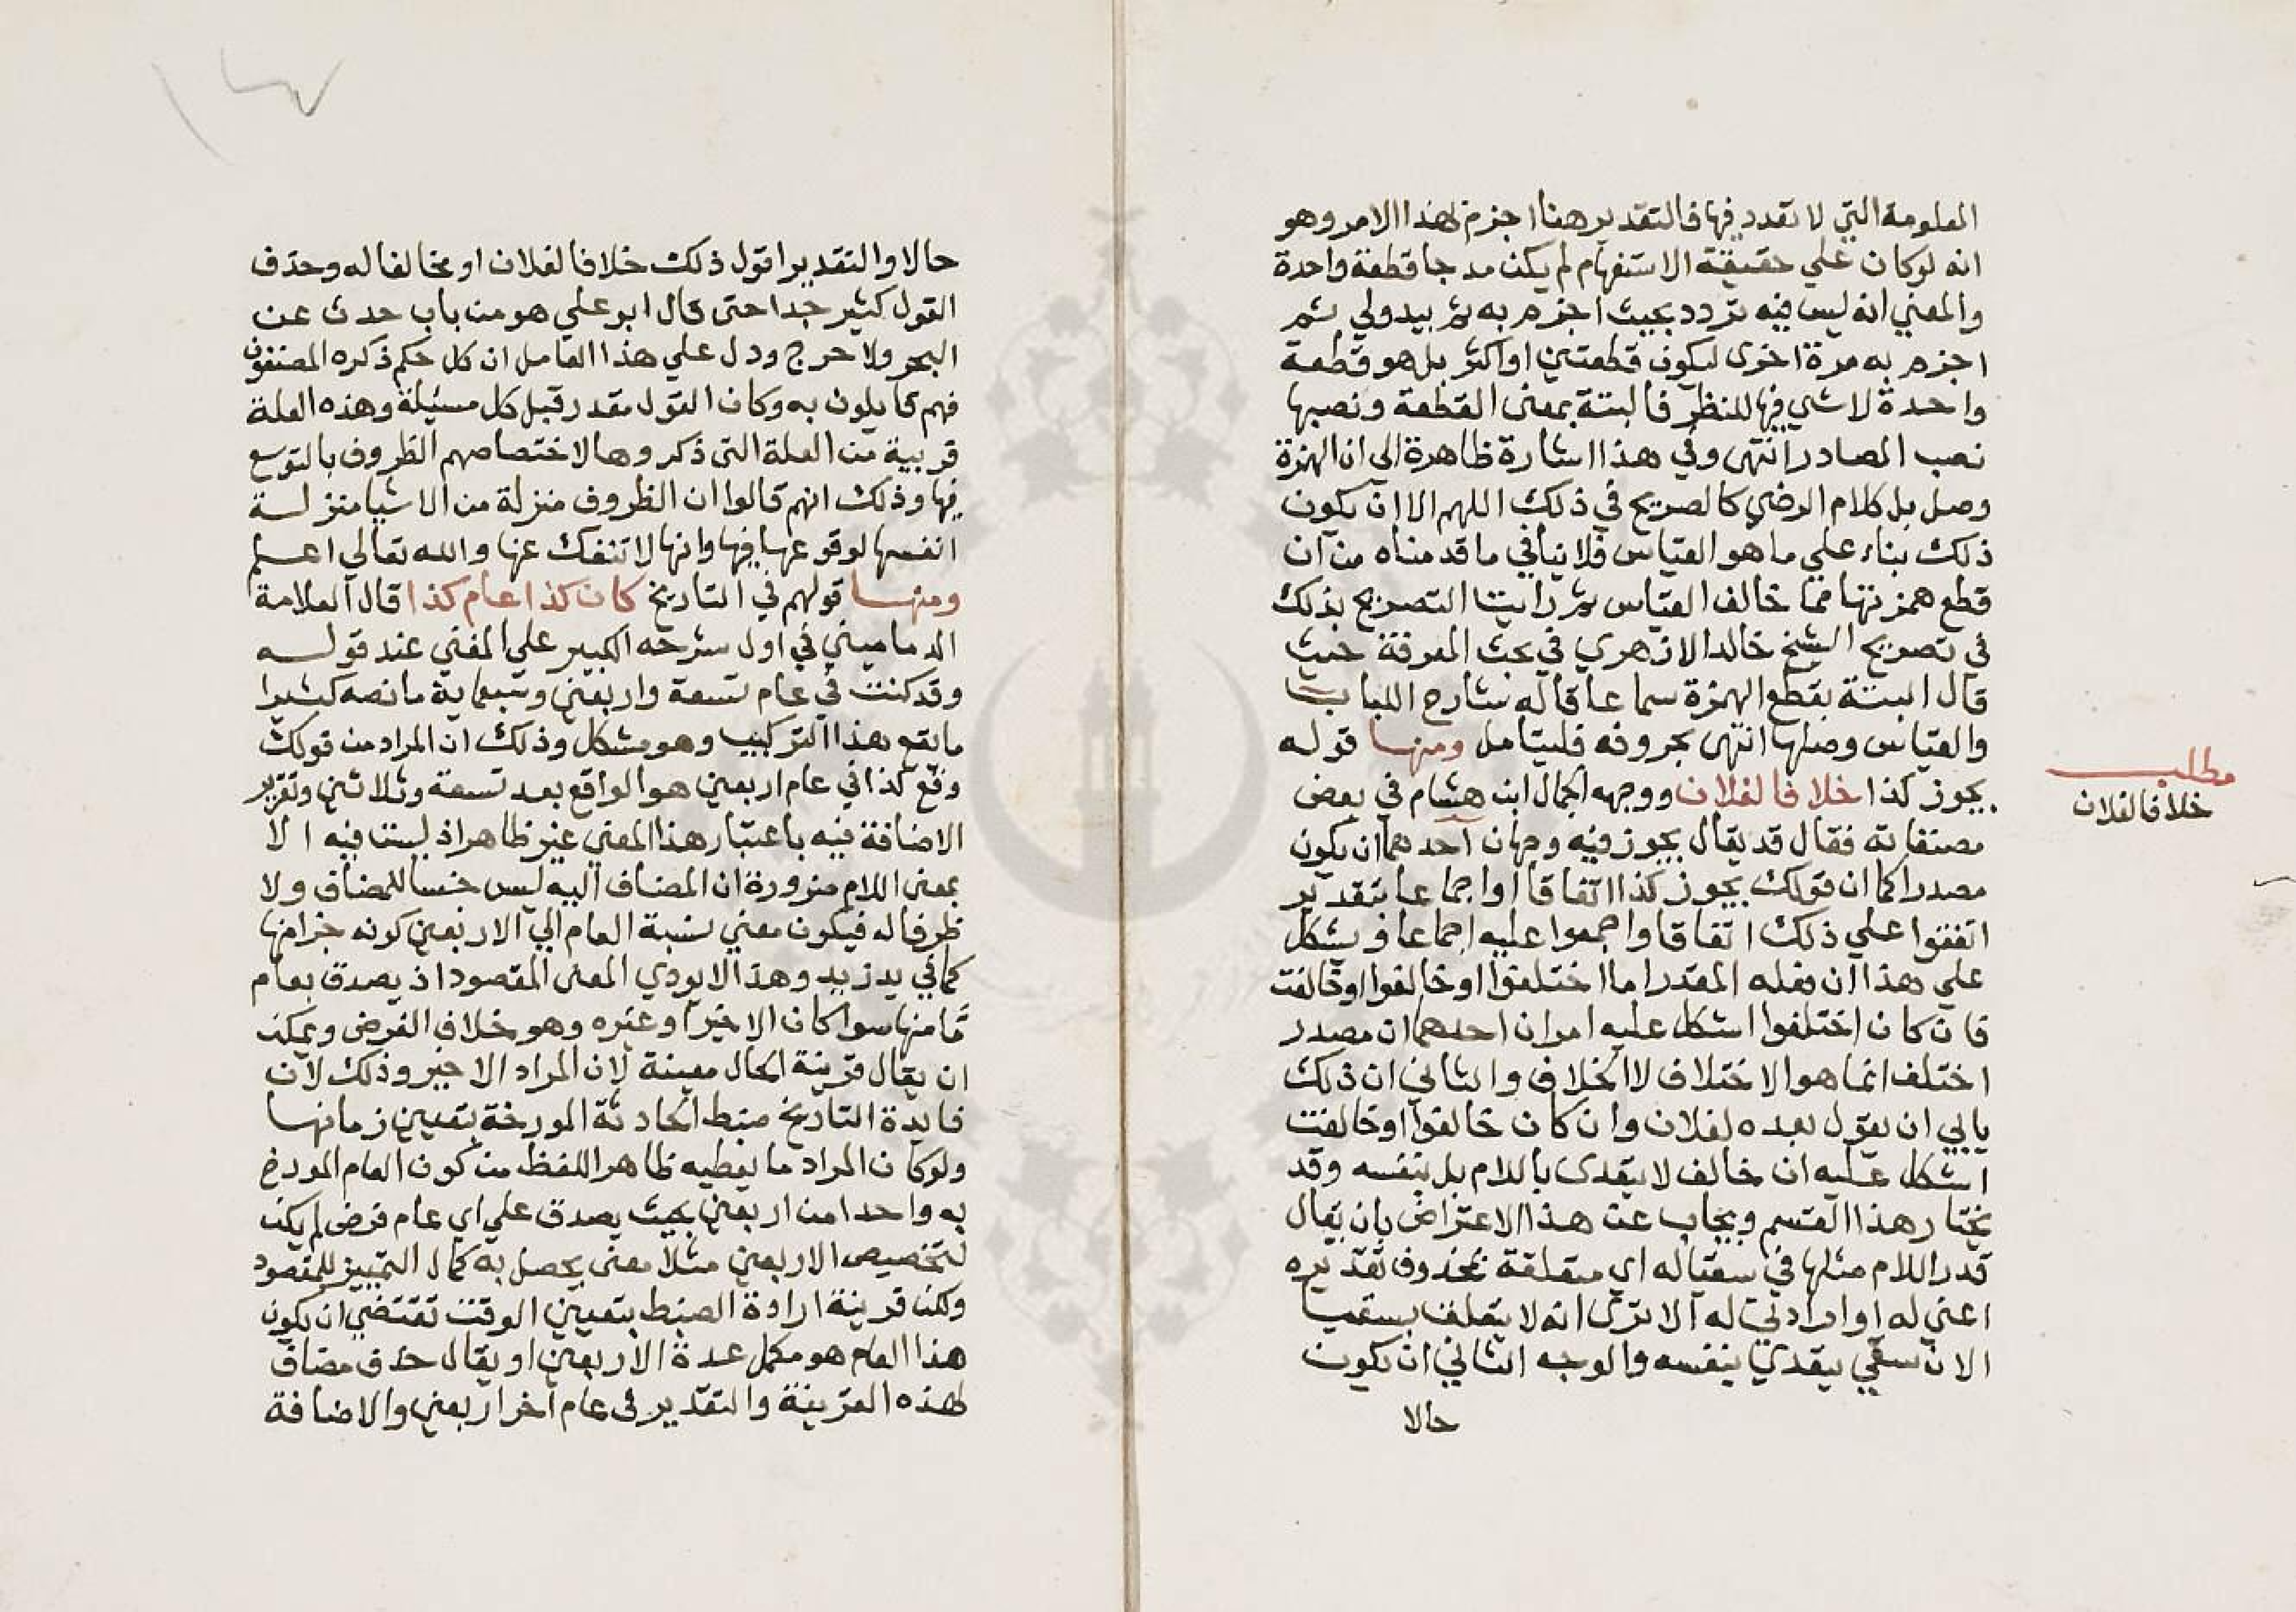 المعلومة التي لا تعدد فيها فالتقدير هنا اجزم لهذا الامر وهو
انه لو كان علي حقيقة الاستفهام لم يكن مد جا قطعة واحدة
والمعني انه ليس فيه تردد بحيث اجزم به ثم يبدولي ثم
اجزم به مرة اخرى ليكون قطعتين او اكثر بل هو قطعة
واحدة لا شي فيها للنظر فالبتة بمعنى القطعة ونصبها
نصب المصادر انتهى وفي هذا اشارة ظاهرة الى ان الهمزة
وصل بل كلام الرضي كالصريح في ذلك اللهم الا ان يكون
ذلك بناء علي ما هو القياس فلا ينافي ما قدمناه من ان
قطع همزتها مما خالف القياس ثم رايت التصريح بذلك
في تصريح الشيخ خالد الازهري في بحث المعرفة حيث
قال البتة بقطع الهمزة سماعا قاله شارح اللباب
والقياس وصلها انتهى بحروفه فليتامل ومنها قوله
يجوز كذا خلافا لفلان ووجهه الجمال ابن هشام في بعض
مطلب
خلافا لفلان
مصنفاته فقال قد يقال يجوز فيه وجهان احدهما ان يكون
مصدرا كما ان قولك يجوز كذا اتفاقا او اجماعا بتقدير
اتفقوا علي ذلك اتفاقا واجمعوا عليه اجماعا ويشكل
علي هذا ان فعله المقدر اما اختلفوا او خالفوا او خالفت
فان كان اختلفوا اشكل عليه امران احدهما ان مصدر
اختلف انما هو الاختلاف لا الخلاف والثاني ان ذلك
يابي ان يقول بعده لفلان وان كان خالفوا او خالفت
اشكل عليه ان خالف لا يتعدى باللام بل بنفسه وقد
يختار هذا القسم ويجاب عن هذا الاعتراض بان يقال
قدر اللام مثلها في سقيا له اي متعلقة بمحذوف تقديره
اعني له او ارادتي له الا ترى انه لا يتعلق بسقيا
لان سقي يتعدي بنفسه والوجه الثاني ان يكون
حالا
حالا والتقدير اقول ذلك خلافا لفلان او مخالفا له وحذف
القول كثير جدا حتى قال ابو علي هو من باب حدث عن
البحر ولا حرج ودل علي هذا العامل ان كل حكم ذكره المصنفون
فهم قايلون به وكان القول مقدر قبل كل مسئلة وهذه العلة
قريبة من العلة التي ذكروها لاختصاصهم الظروف بالتوسع
فيها وذلك انهم قالوا ان الظروف منزلة من الاشيا منزلة
انفسها لوقوعها فيها وانها لا تنفك عنها والله تعالي اعلم
ومنها قولهم في التاريخ كان كذا عام كذا قال العلامة
الدماميني في اول شرحه الكبير علي المغني عند قوله
وقد كنت في عام تسعة واربعين وسبعماية ما نصه كثيرا
ما يقع هذا التركيب وهو مشكل وذلك ان المراد من قولك
وقع كذا في عام اربعين هو الواقع بعد تسعة وثلاثين وتقرير
الاضافة فيه باعتبار هذا المعني غير ظاهر اذ ليست فيه الا
بمعنى اللام ضرورة ان المضاف اليه ليس جنسا للمضاف ولا
ظرفا له فيكون معني نسبة العام الي الاربعين كونه جزا منها
كما في يد زيد وهذا لا يودي المعنى المقصود اذ يصدق بعام
ما منها سوا كان الاخير او غيره وهو خلاف الغرض ويمكن
ان يقال قرينة الحال معينة لان المراد الاخير وذلك لان
فايدة التاريخ ضبط الحادثة المورخة بتعيين زمانها
ولو كان المراد ما يعطيه ظاهر اللفظ من كون العام المورخ
به واحدا من اربعين بحيث يصدق علي اي عام فرض لم يكن
لتخصيص الاربعين مثلا معنى يحصل به كمال التمييز للمقصود
ولكن قرينة ارادة الضبط بتعيين الوقت تقتضي ان يكون
هذا العام هو مكمل عدة الاربعين او يقال حذف مضاف
لهذه القرينة والتقدير في عام آخر اربعين والاضافة